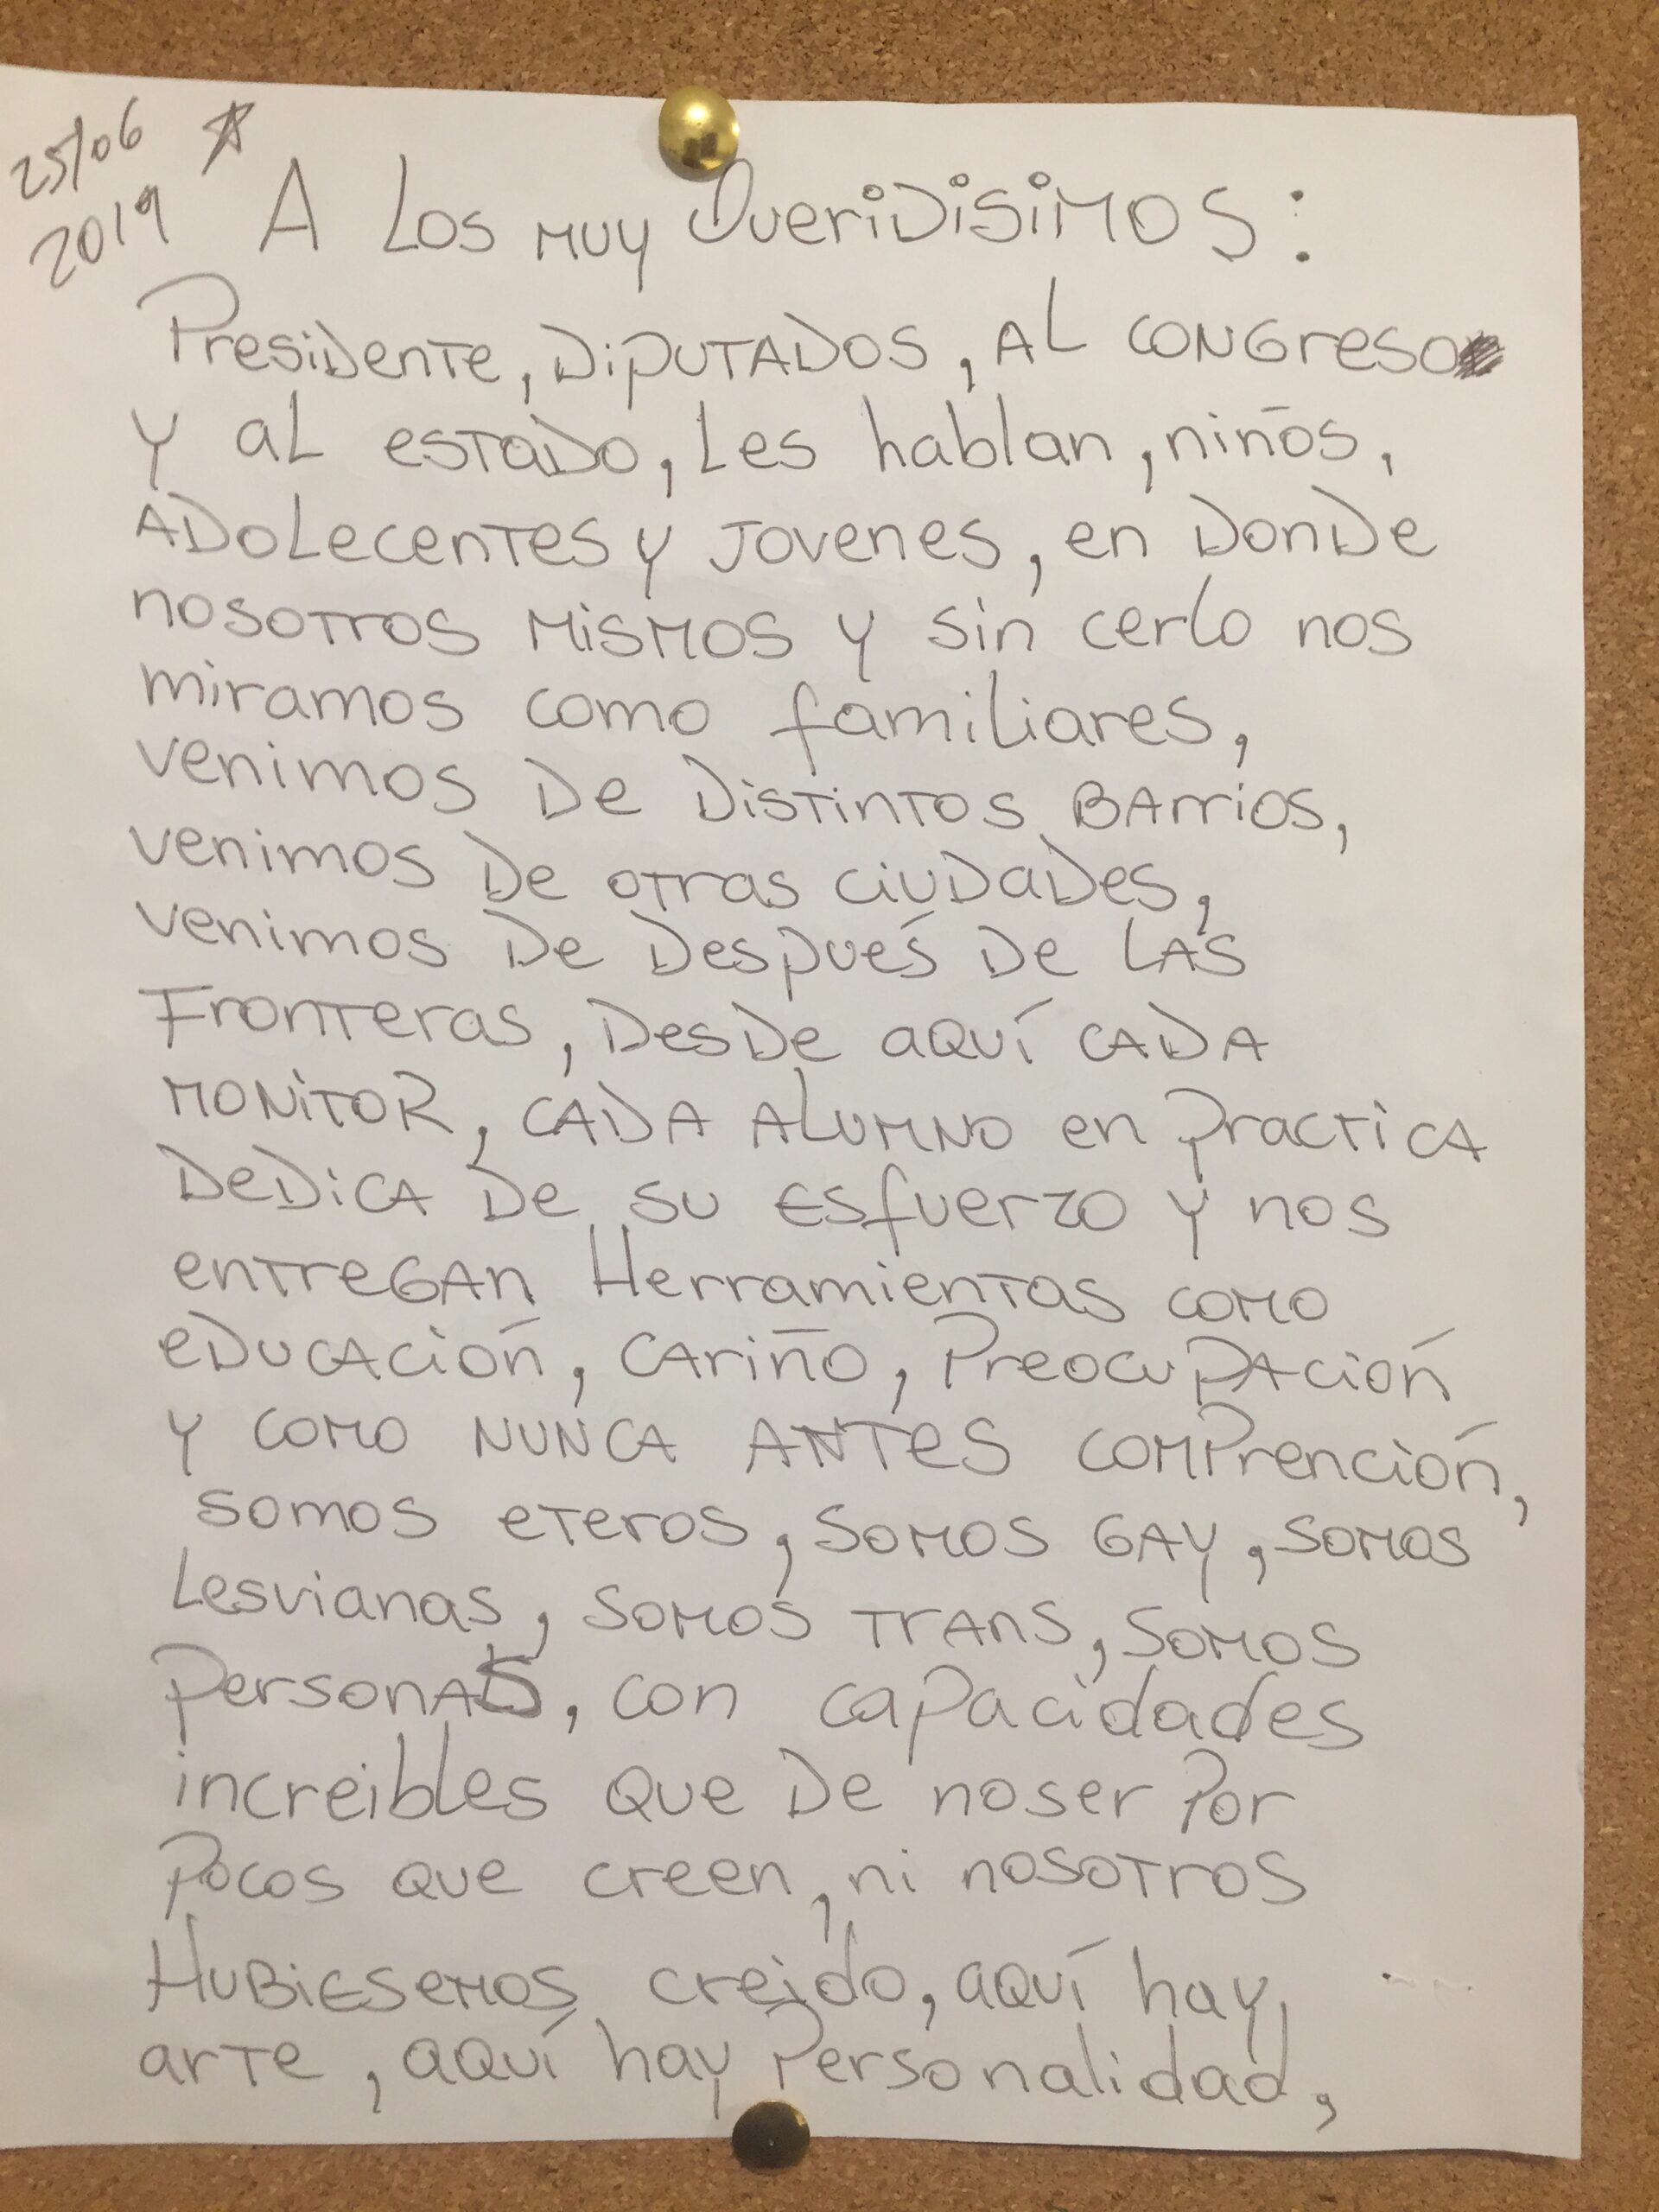 25/06
2019
A Los muy Queridisimos:
Presidente, Diputados, al congreso
y al estado, Les hablan, niños,
Adolecentes y Jovenes, en Donde
nosotros mismos y sin cerlo nos
miramos como familiares,
venimos De Distintos Barrios,
venimos De otras ciudades,
venimos De Después De Las
Fronteras, Desde aquí cada
monitor, cada alumno en practica
Dedica De su Esfuerzo y nos
entregan Herramientas como
educación, cariño, Preocupación
y como nunca antes comprención,
somos eteros, somos gay, somos
Lesvianas, somos trans, somos
personas, con capacidades
increibles que De noser por
pocos que creen, ni nosotros
Hubiesemos creido, aquí hay
arte, aquí hay Personalidad,